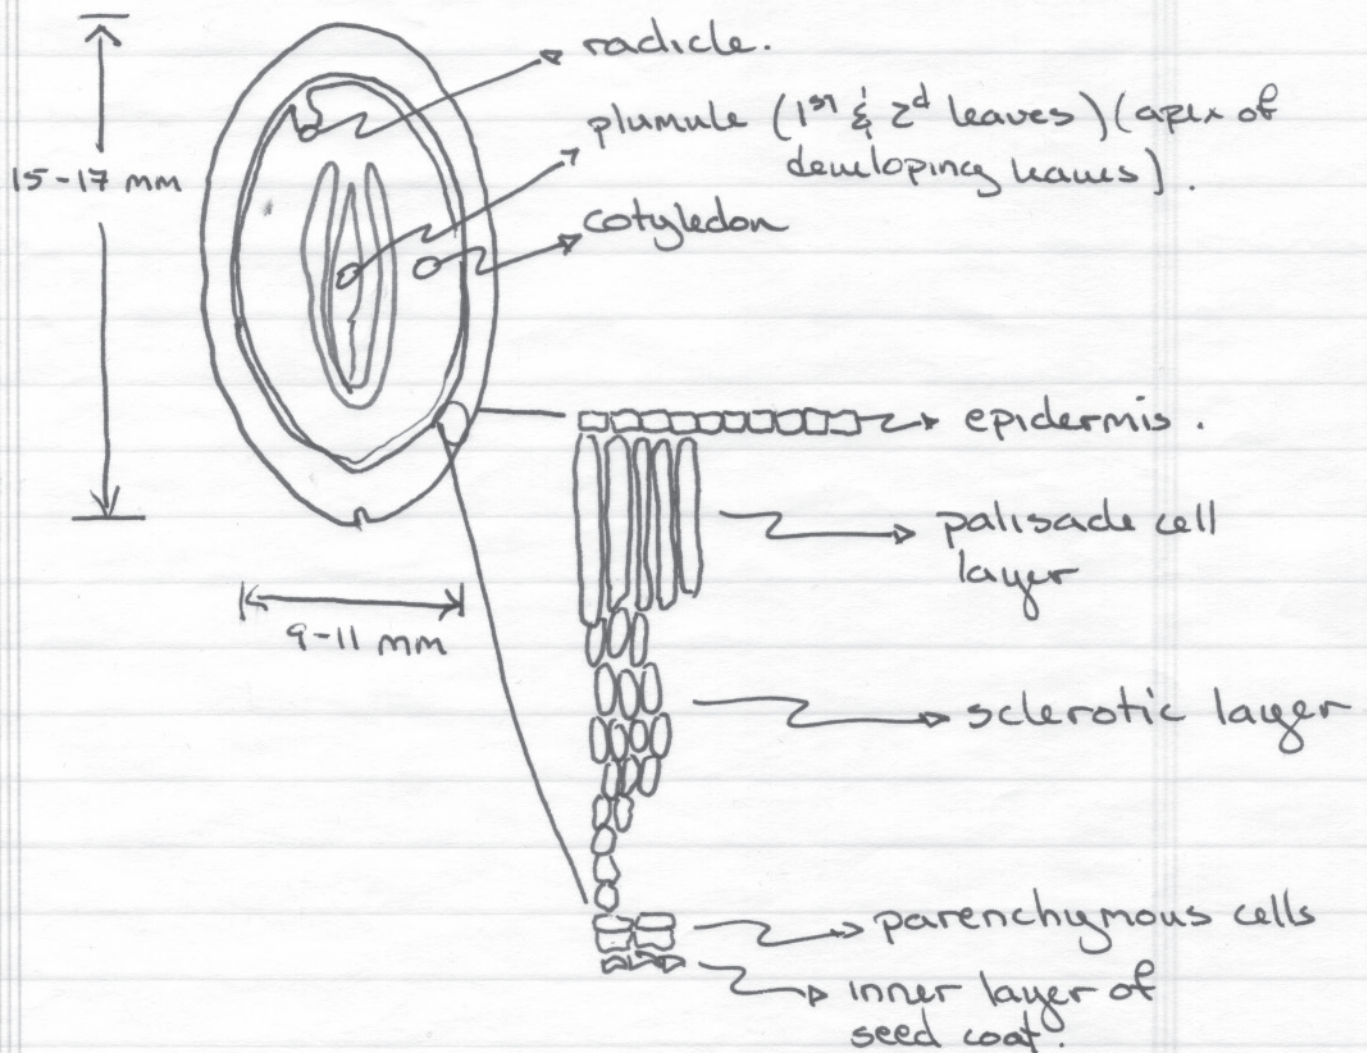 radicle.
plumule (1st & 2d leaves) (apex of
developing leaves).
15-17 mm
cotyledon
epidermis.
palisade cell
layer
9-11 mm
sclerotic layer
parenchymous cells
inner layer of
seed coat.